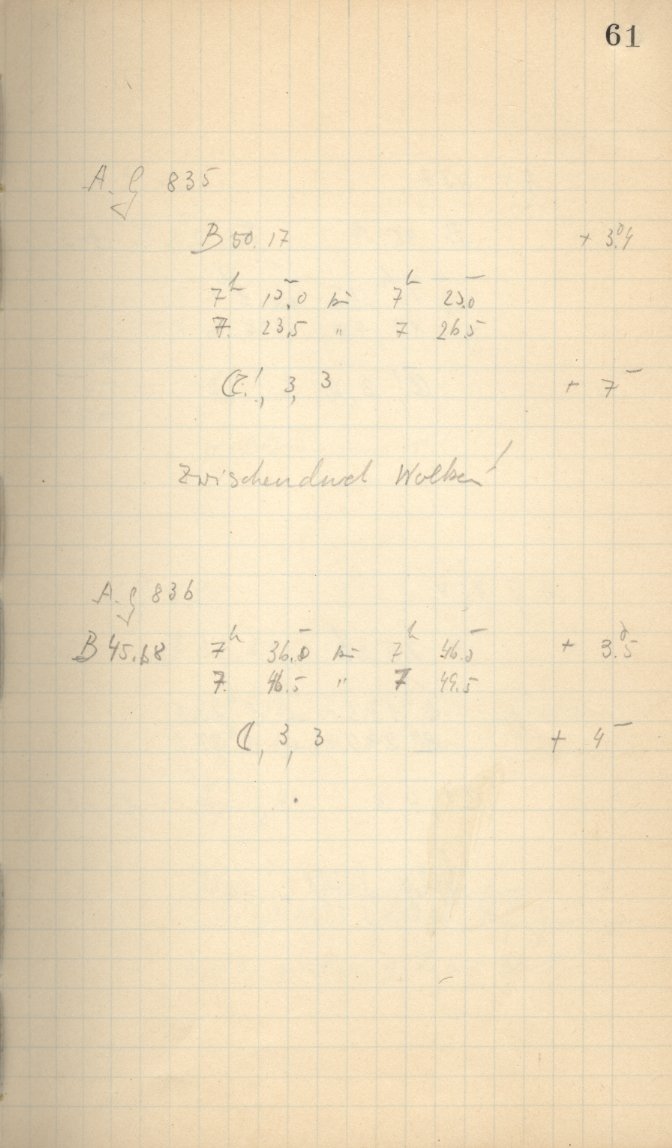 61
A.G 835
B 50.17 + 3.°4
7ʰ 15.0 bis 7ʰ 25.0
7. 23.5 " 7 26.5
☾!, 3, 3 + 7
Zwischendurch Wolken!
A.G 836
B 45.68 7ʰ 36.0 bis 7ʰ 46.0 + 3.°5
7. 46.5 " 7 49.5
☾, 3, 3 + 4